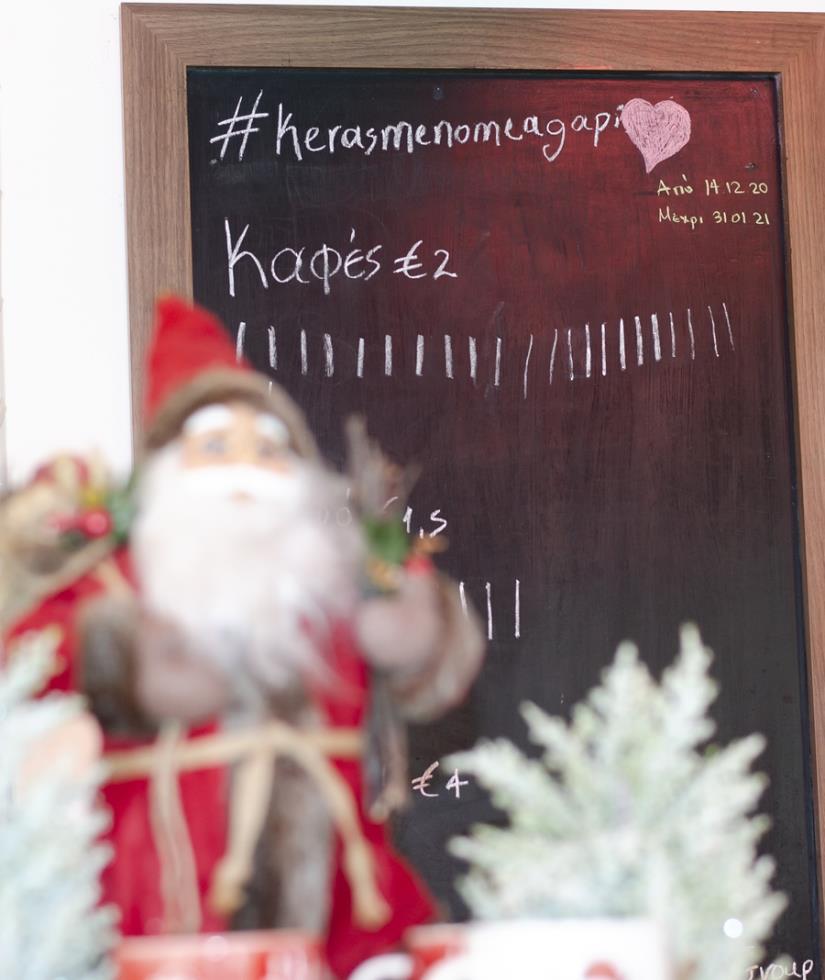 #kerasmenomeagapi
Από 14.12.20
Μεχρι 31 01 21
Καφές €2
1,5
€4